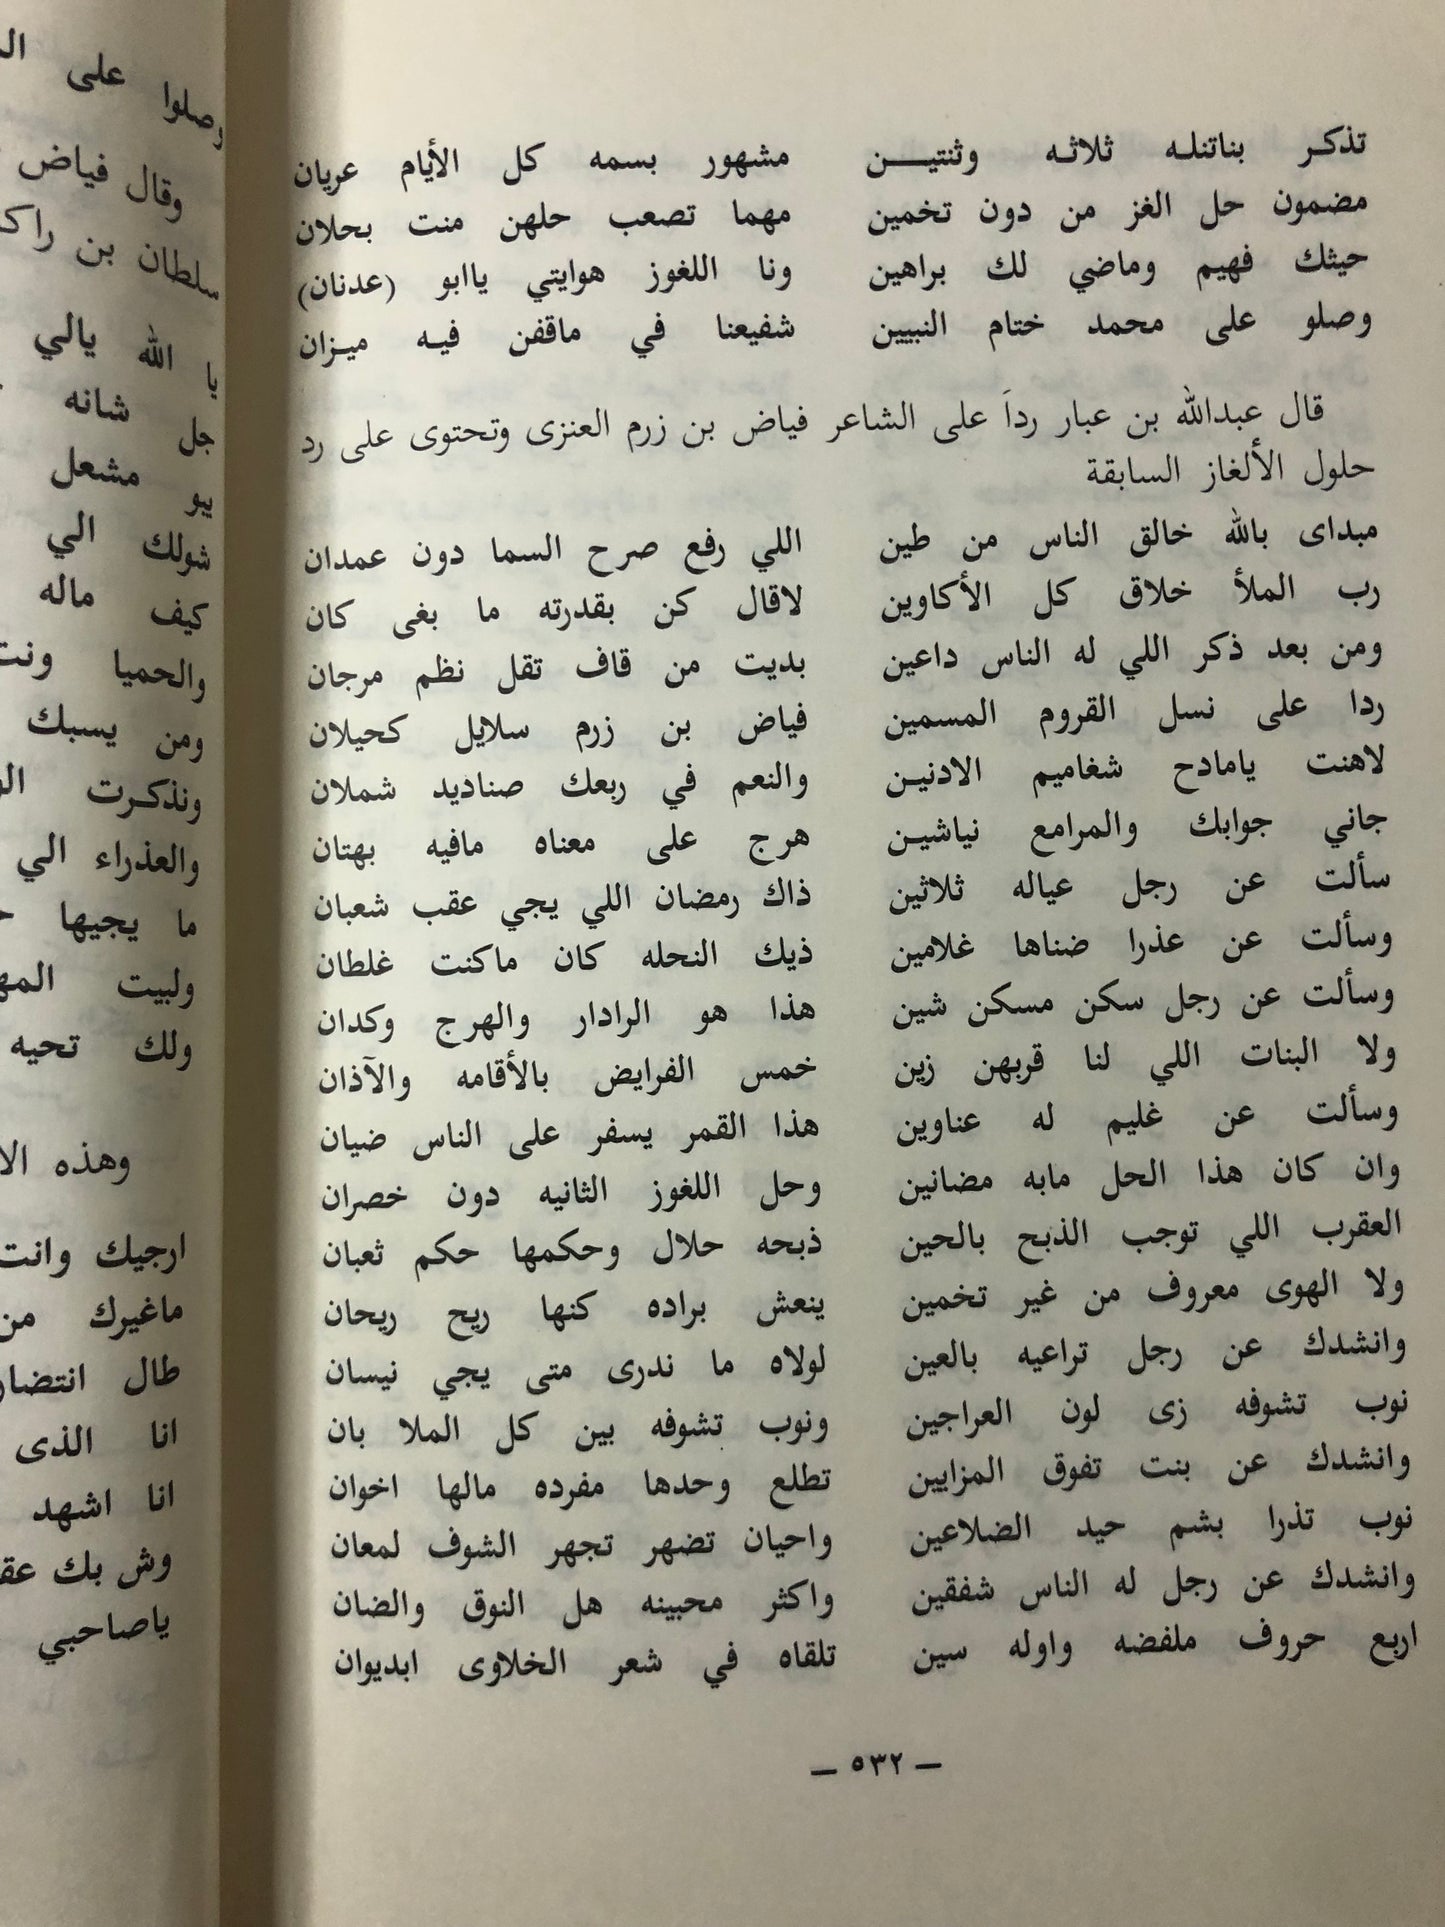 تذكر بناتنله ثلاثه وثنتيـــن مشهور بسمه كل الأيام عريان
مضمون حل الغز من دون تخمين مهما تصعب حلهن منت بحلان
حيثك فهيم وماضي لك براهين ونا اللغوز هوايتي ياابو (عدنان)
وصلو على محمد ختام النبيين شفيعنا في ماقفن فيه ميزان
قال عبدالله بن عبار رداَ على الشاعر فياض بن زرم العنزى وتحتوى على رد
حلول الألغاز السابقة
مبداى بالله خالق الناس من طين اللي رفع صرح السما دون عمدان
رب الملأ خلاق كل الأكاوين لاقال كن بقدرته ما بغى كان
ومن بعد ذكر اللي له الناس داعين بديت من قاف تقل نظم مرجان
ردا على نسل القروم المسمين فياض بن زرم سلايل كحيلان
لاهنت يامادح شغاميم الادنين والنعم في ربعك صناديد شملان
جاني جوابك والمرامع نياشين هرج على معناه مافيه بهتان
سألت عن رجل عياله ثلاثين ذاك رمضان اللي يجي عقب شعبان
وسألت عن عذرا ضناها غلامين ذيك النحله كان ماكنت غلطان
وسألت عن رجل سكن مسكن شين هذا هو الرادار والهرج وكدان
ولا البنات اللي لنا قربهن زين خمس الفرايض بالأقامه والآذان
وسألت عن غليم له عناوين هذا القمر يسفر على الناس ضيان
وان كان هذا الحل مابه مضانين وحل اللغوز الثانيه دون خصران
العقرب اللي توجب الذبح بالحين ذبحه حلال وحكمها حكم ثعبان
ولا الهوى معروف من غير تخمين ينعش براده كنها ريح ريحان
وانشدك عن رجل تراعيه بالعين لولاه ما ندرى متى يجي نيسان
نوب تشوفه زى لون العراجين ونوب تشوفه بين كل الملا بان
وانشدك عن بنت تفوق المزايين تطلع وحدها مفرده مالها اخوان
نوب تذرا بشم حيد الضلاعين واحيان تضهر تجهر الشوف لمعان
وانشدك عن رجل له الناس شفقين واكثر محبينه هل النوق والضان
اربع حروف ملفضه واوله سين تلقاه في شعر الخلاوى ابديوان
— ٥٣٢ —
وصلوا على
وقال فياض
سلطان بن
يا الله يالي
جل شانه
يبو مشعل
شولك الي
كيف ماله
والحميا
ومن يسبك
ونذكرت
والعذراء الي
ما يجيها
ولبيت
ولك تحيه
وهذه
ارجيك وانت
ماغيرك من
طال
انا الذى
انا اشهد
وش بك
ياصاحبي